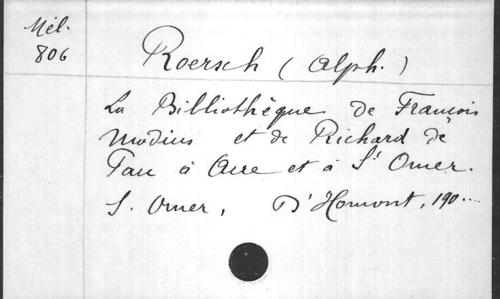 Mél.
806
Roersch (Alph.)
La Bibliothèque de François
Modius et de Richard de
Pan à Aire et à St Omer.
S. Omer, D'Homont, 190....